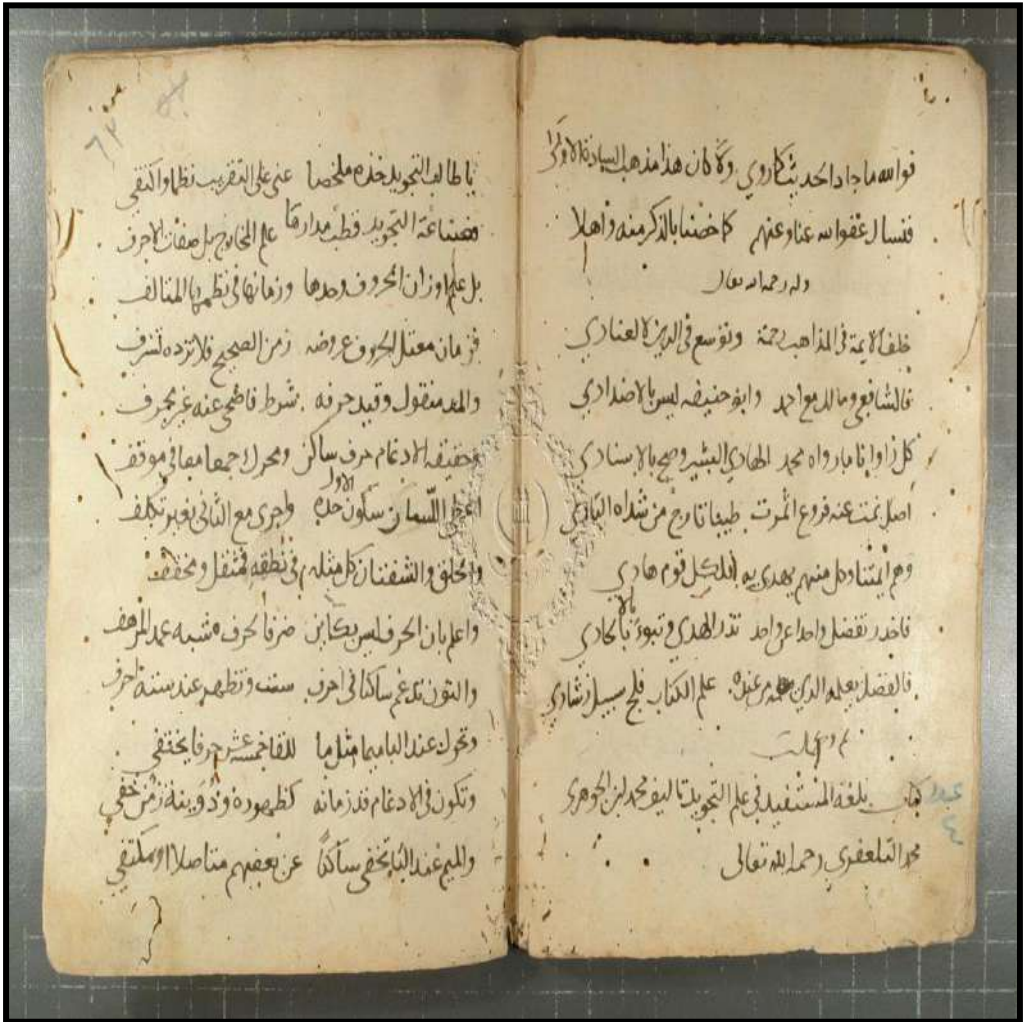 فوالله ما جاد الحديث كما روي ولا كان هذا مذهب السادة الاولا
فنسال عفو الله عنا وعنهم كما خصنا بالذكر منه واهلا
وله رحمه الله تعالى
خلف الايمة في المذاهب رحمة وتوسع في الدين لا لعنادي
فالشافعي ومالك مع احمد وابو حنيفه ليس بالاضدادي
كل زاوانا ما رواه محمد الهادي البشير وصح بالاسنادي
اصل نمت عنه فروع اثمرت طيبا تارج من شذاه النادي
وهم ايمتنا وكل منهم يهدي به ولكل قوم هادي
فاحذر تفضل واحدا عن واحد تذر الهدي وتبوء بالالحادي
فالفضل يعلمه الذي من عنده علم الكتاب فلج سبيل رشادي
تم وكملت
كتاب بلغة المستفيد في علم التجويد تاليف محمد ابن الجوهري
محمد التلعفري رحمه الله تعالى
٦٢
يا طالب التجويد خذه ملخصا عني على التقريب نظما واكتفي
فصناعة التجويد قطب مدارها علم المخارج بل صفات الاحرف
بل علم اوزان الحروف وحدها وزمانها في نظمها المتالف
فزمان معتل الحروف عروضه زمن الصحيح فلا تزده تشرف
والمد منقول وقيد حرفه شرط فاضحى عنه غير محرف
وحقيقة الادغام حرف ساكن ومحرك جمعا معا في موقف
اللسان سكون حده الاول واجري مع الثاني بغير تكلف
والحلق والشفتان كل مثله في نطقه فمثقل ومخفف
واعلم بان الحرف ليس بكاين ضرفا لحرف مشبه عمد المرهف
والنون تدغم ساكنا في احرف ست وتظهر عند ستة احرف
وتحول عند الباء ميما مثل ما للقا خمسة عشر حرفا يختفي
وتكون في الادغام قدر زمانه كظهوره وزمن خفي
والميم عند الباء تخفى ساكنا عن بعضهم متاصلا او مكتفي